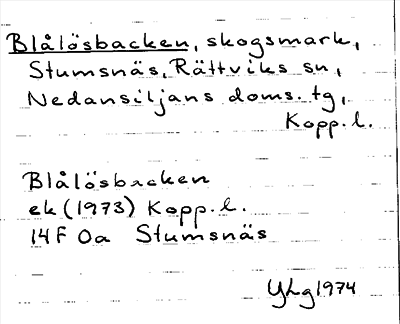 Blålösbacken, skogsmark,
Stumsnäs, Rättviks sn,
Nedansiljans doms. tg,
Kopp. l.
Blålösbacken
ek (1973) Kopp. l.
14 F 0a Stumsnäs
YLg 1974